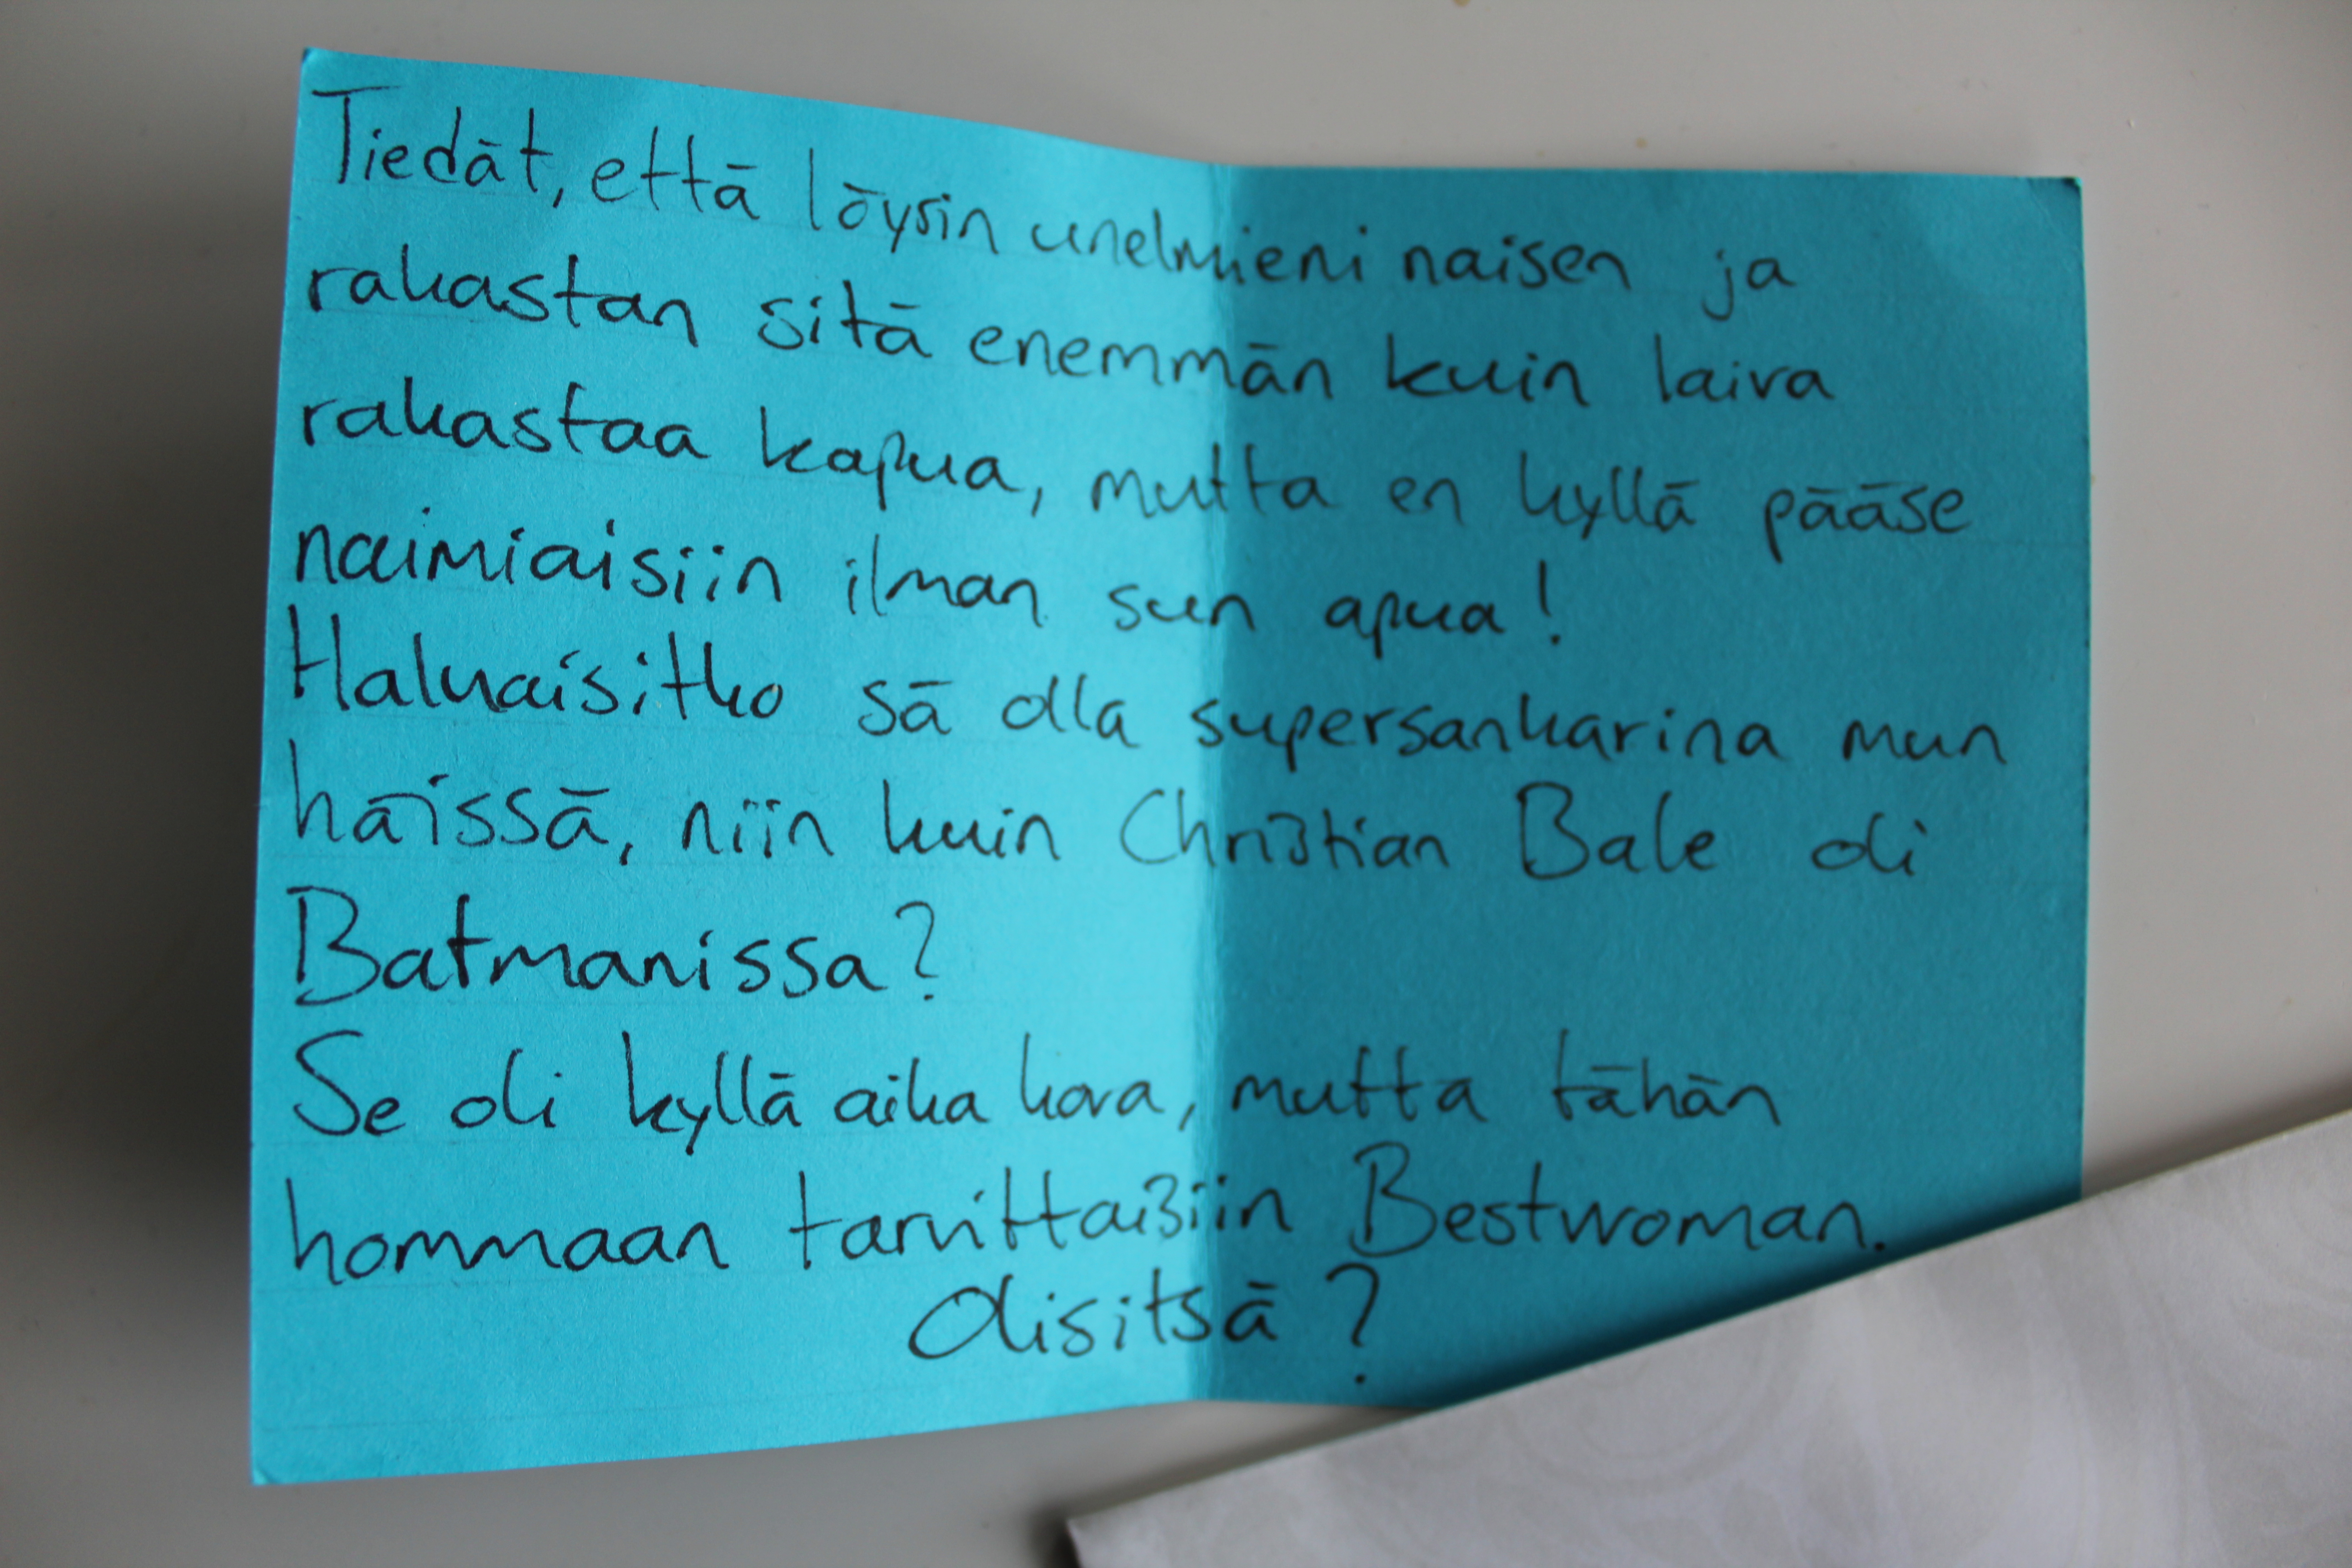 Tiedät, että löysin unelmieni naisen ja
rakastan sitä enemmän kuin laiva
rakastaa kapua, mutta en kyllä pääse
naimiaisiin ilman sun apua!
Haluaisitko sä olla supersankarina mun
häissä, niin kuin Christian Bale oli
Batmanissa?
Se oli kyllä aika kova, mutta tähän
hommaan tarvittaisiin Bestwoman.
Olisitsä?